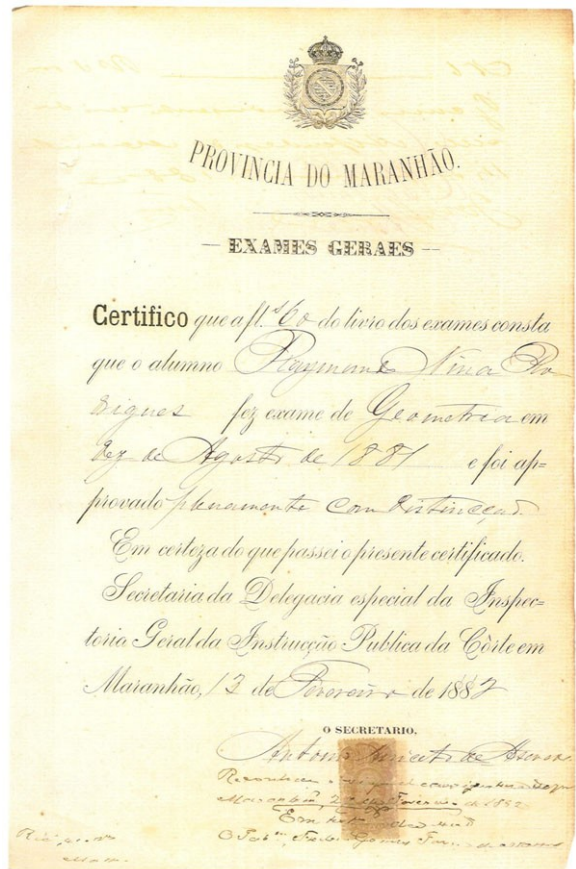 PROVINCIA DO MARANHÃO.
— EXAMES GERAES —
Certifico que a fl. 160 do livro dos exames consta
que o alumno Raymundo Nina Ro
drigues fez exame de Geometria em
dez de Agosto de 1881 e foi ap=
provado plenamente com distincção.
Em certeza do que passei o presente certificado.
Secretaria da Delegacia especial da Inspec=
toria Geral da Instrucção Publica da Côrte em
Maranhão, 13 de Fevereiro de 1882
O SECRETARIO.
Antonio de
Maranhão, de Fevereiro de 1882
Em de